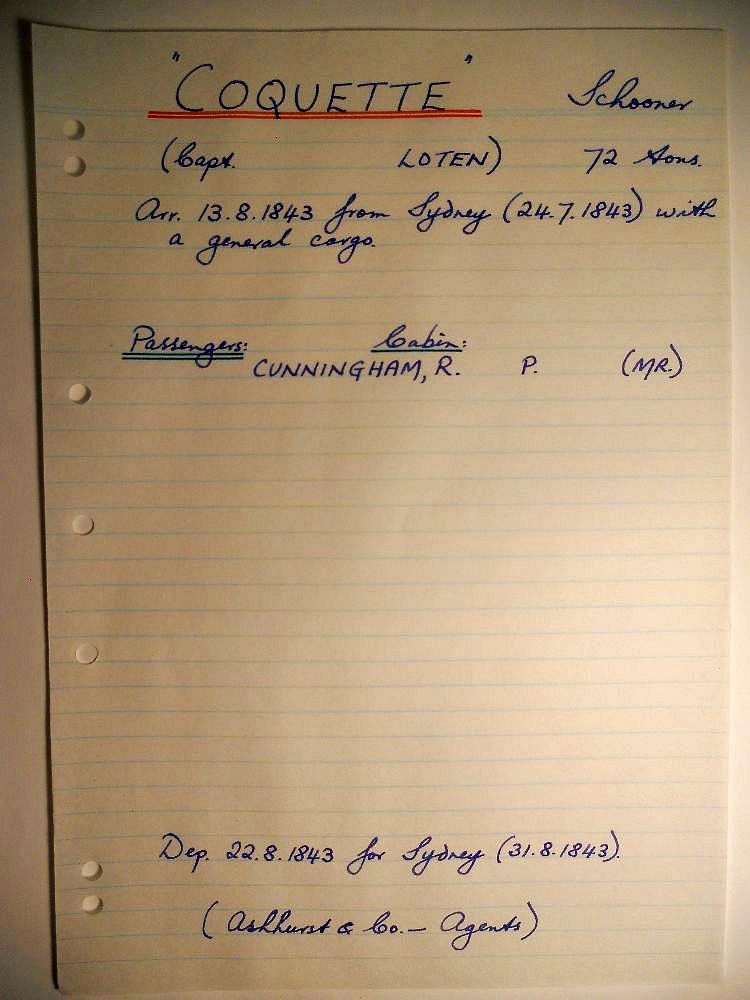 "COQUETTE" Schooner
(Capt. LOTEN) 72 tons.
Arr. 13.8.1843 from Sydney (24.7.1843) with
a general cargo.
Passengers: Cabin:
CUNNINGHAM, R. P. (MR.)
Dep. 22.8.1843 for Sydney (31.8.1843).
(Ashhurst & Co. — Agents)